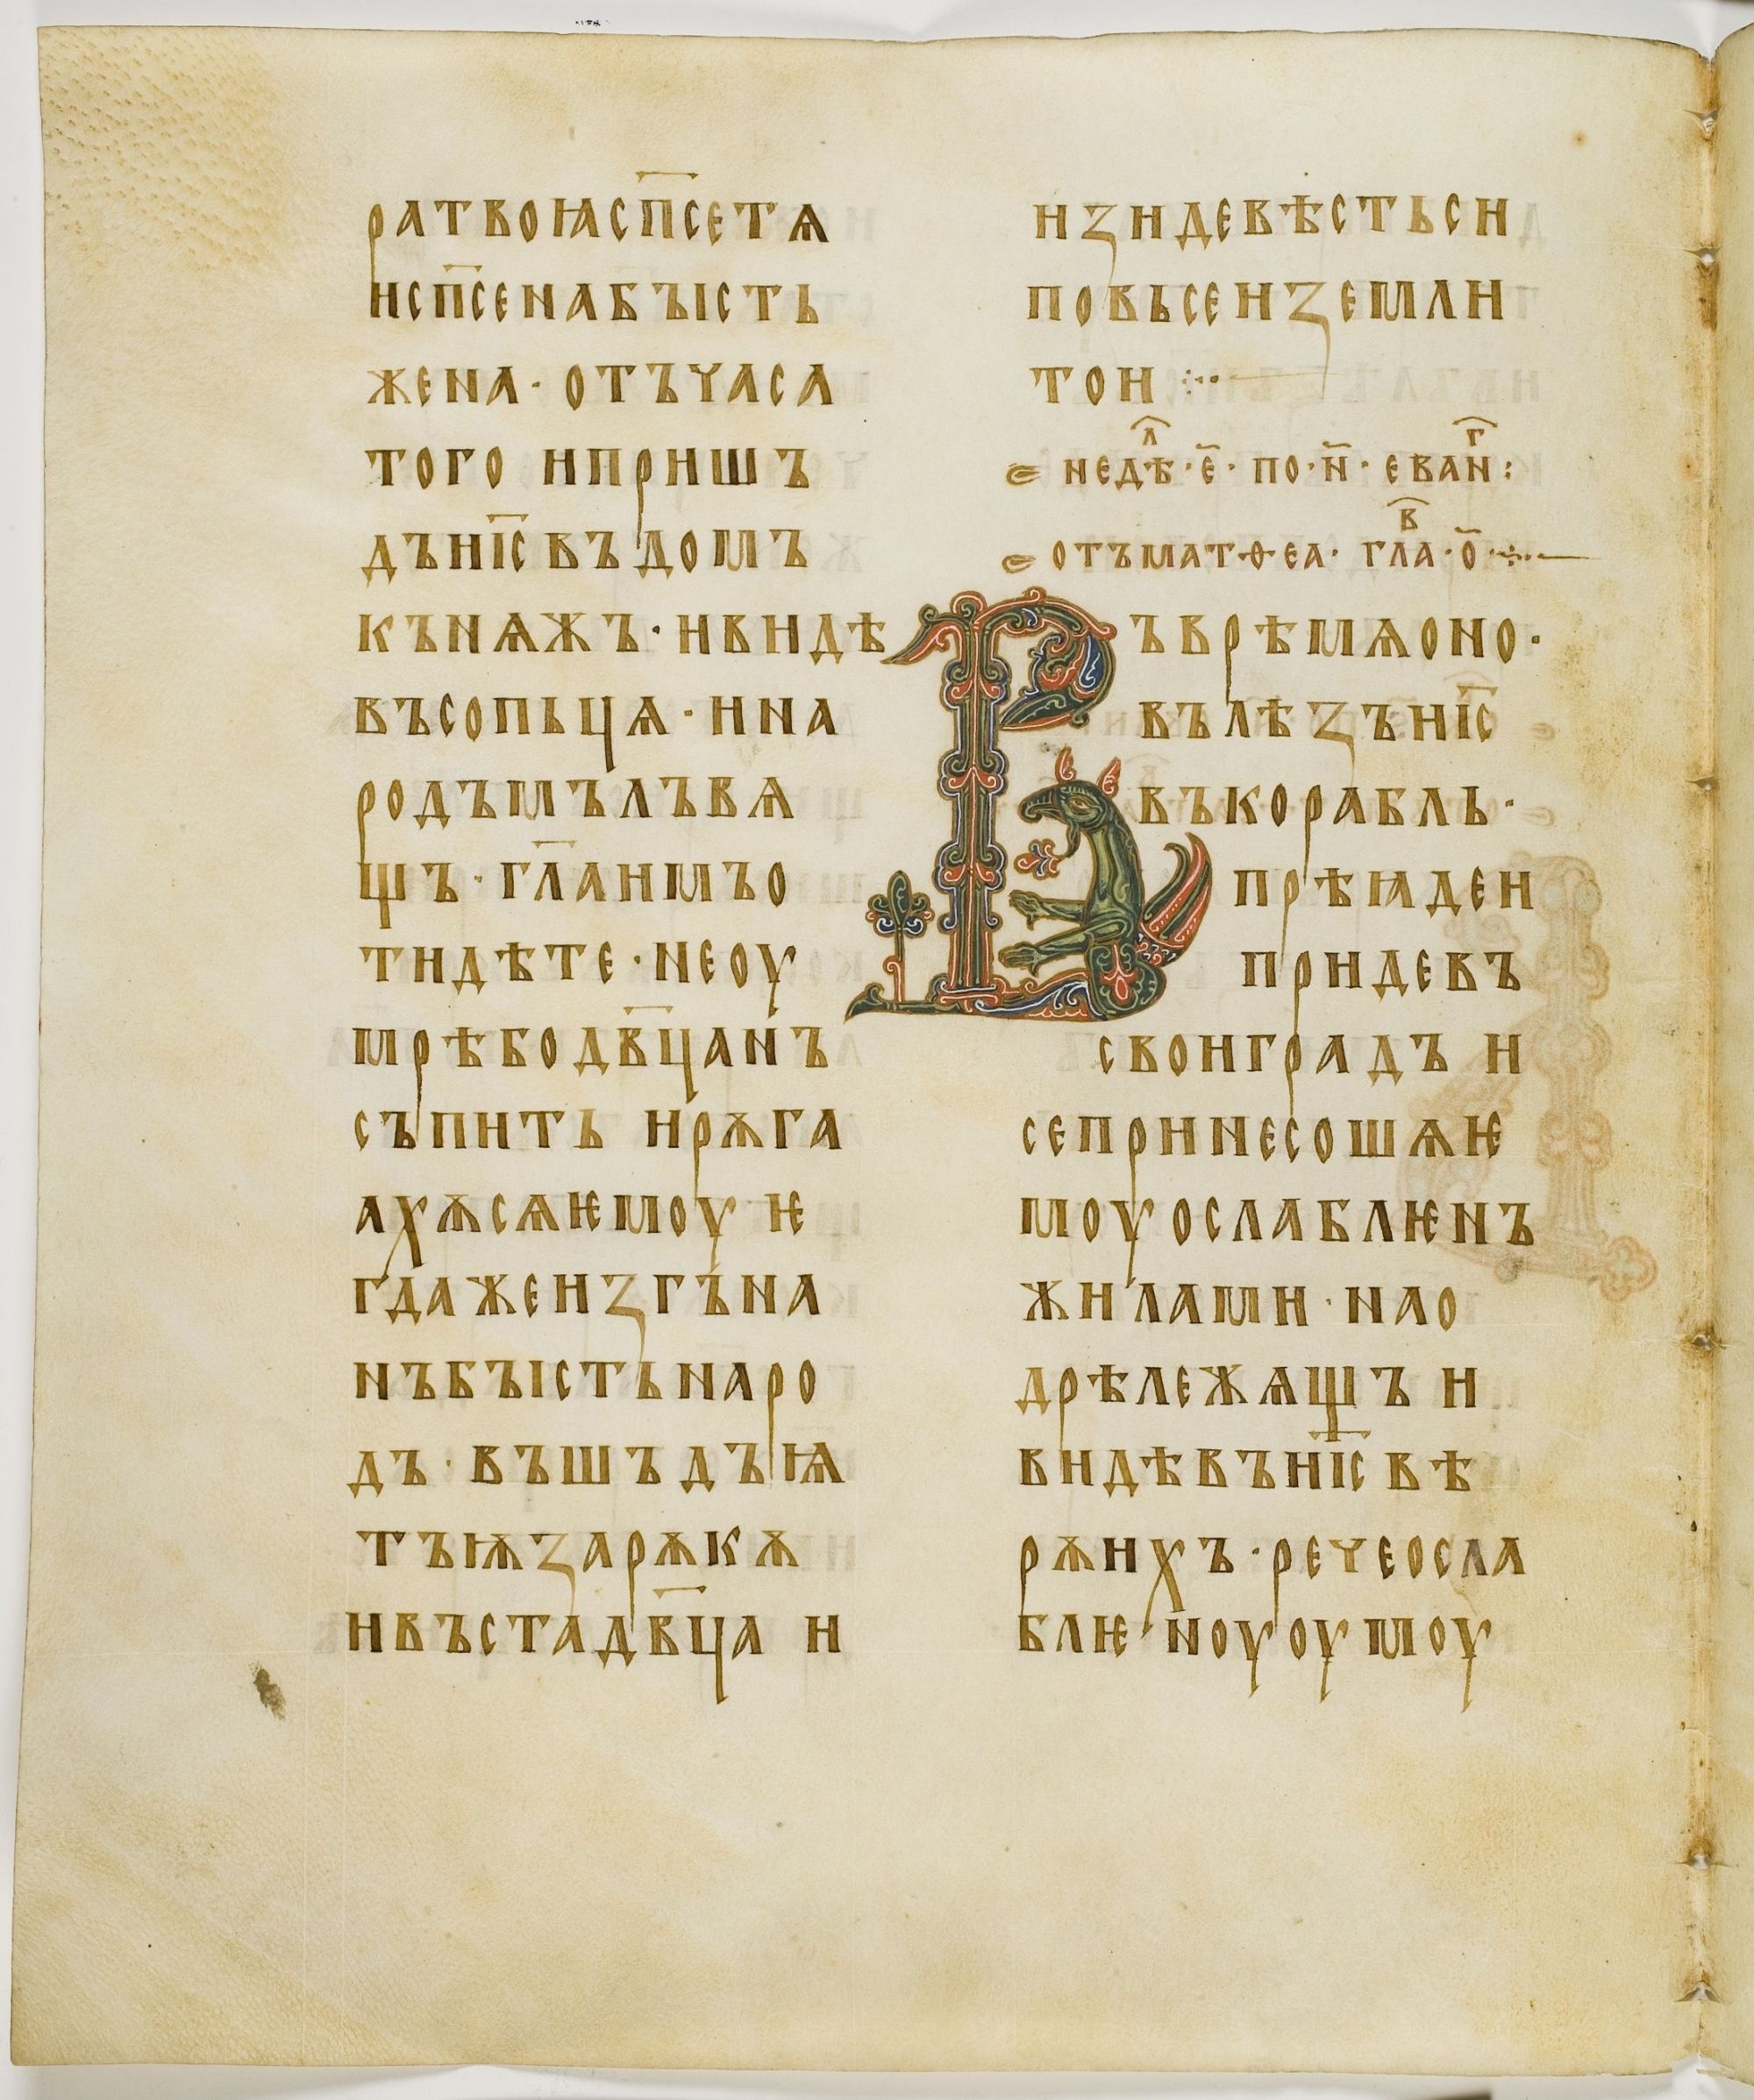 ра твоꙗ сп҃се тѧ
и сп҃сена бꙑсть
жена · отъ часа
того и пришь
дъ и҃с въ домъ
кънѧжъ · и видѣ
въ сопьцѧ · и на
родъ мълъвѧ
щь · гл҃а имъ о
тидѣте · не оу
мрѣ бо дв҃ца нъ
съпить и рѫга
ахѫсѧ ѥмоу ѥ
гда же изгъна
нъ бꙑсть наро
дъ · въшьдъ ꙗ
тъ ѭ за рѫкѫ
и въста дв҃ца и
изиде вѣсть си
по вьсеи земли
тои ⁘
недѣⷧ · е҃ · по · н҃ · еваⷢн :
отъ матѳеа · глаⷡ · о҃ · ⁘
Въ врѣмѧ оно ·
вълѣзъ и҃с
въ корабль ·
прѣꙗде и
приде въ
свои градъ и
се принесошѧ ѥ
моу ослаблѥнъ
жилами · на о
дрѣ лежѧщь и
видѣвъ и҃с вѣ
рѫ ихъ · рече осла
блѥноуоумоу